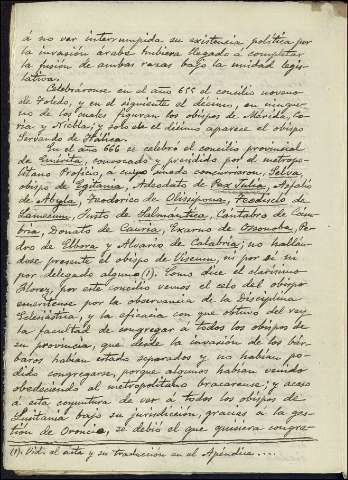 á no ver interrumpida su existencia política por
la invasión árabe hubiera llegado á completar
la fusión de ambas razas bajo la unidad legis-
lativa.
Celebráronse en el año 655 el concilio noveno
de Toledo, y en el siguiente el décimo, en ningu-
no de los cuales figuran los obispos de Mérida, Co-
ria y Niebla; y solo en el décimo aparece el obispo
Servando de Itálica.
En el año 666 se celebró el concilio provincial
de Emérita, convocado y presidido por el metropo-
litano Proficio, á cuyo sínodo concurrieron, Selva,
obispo de Egitania, Adeodato de Pax Julia, Asfalio
de Abyla, Teodorico de Olissipona, Teodisclo de
Lamecum, Justo de Salmántica, Cántabro de Coim-
bria, Donato de Cauria, Exarno de Ossonoba, Pe-
dro de Elbora y Alvario de Calabria; no hallán-
dose presente el obispo de Viseum, ni por sí ni
por delegado alguno (1). Como dice el clarísimo
Florez, por este concilio vemos el celo del obispo
emeritense por la observancia de la Disciplina
Eclesiástica, y la eficacia con que obtuvo del rey
la facultad de congregar á todos los obispos de
su provincia, que desde la invasión de los bár-
baros habían estado separados y no habían po-
dido congregarse, porque algunos habían venido
obedeciendo al metropolitano bracarense; y acaso
á esta coyuntura de ver á todos los obispos de
Lusitania bajo su jurisdicción, gracias á la ges-
tión de Oroncio, se debió el que quisiera congre-
(1). Vid. el acta y su traducción en el Apéndice....